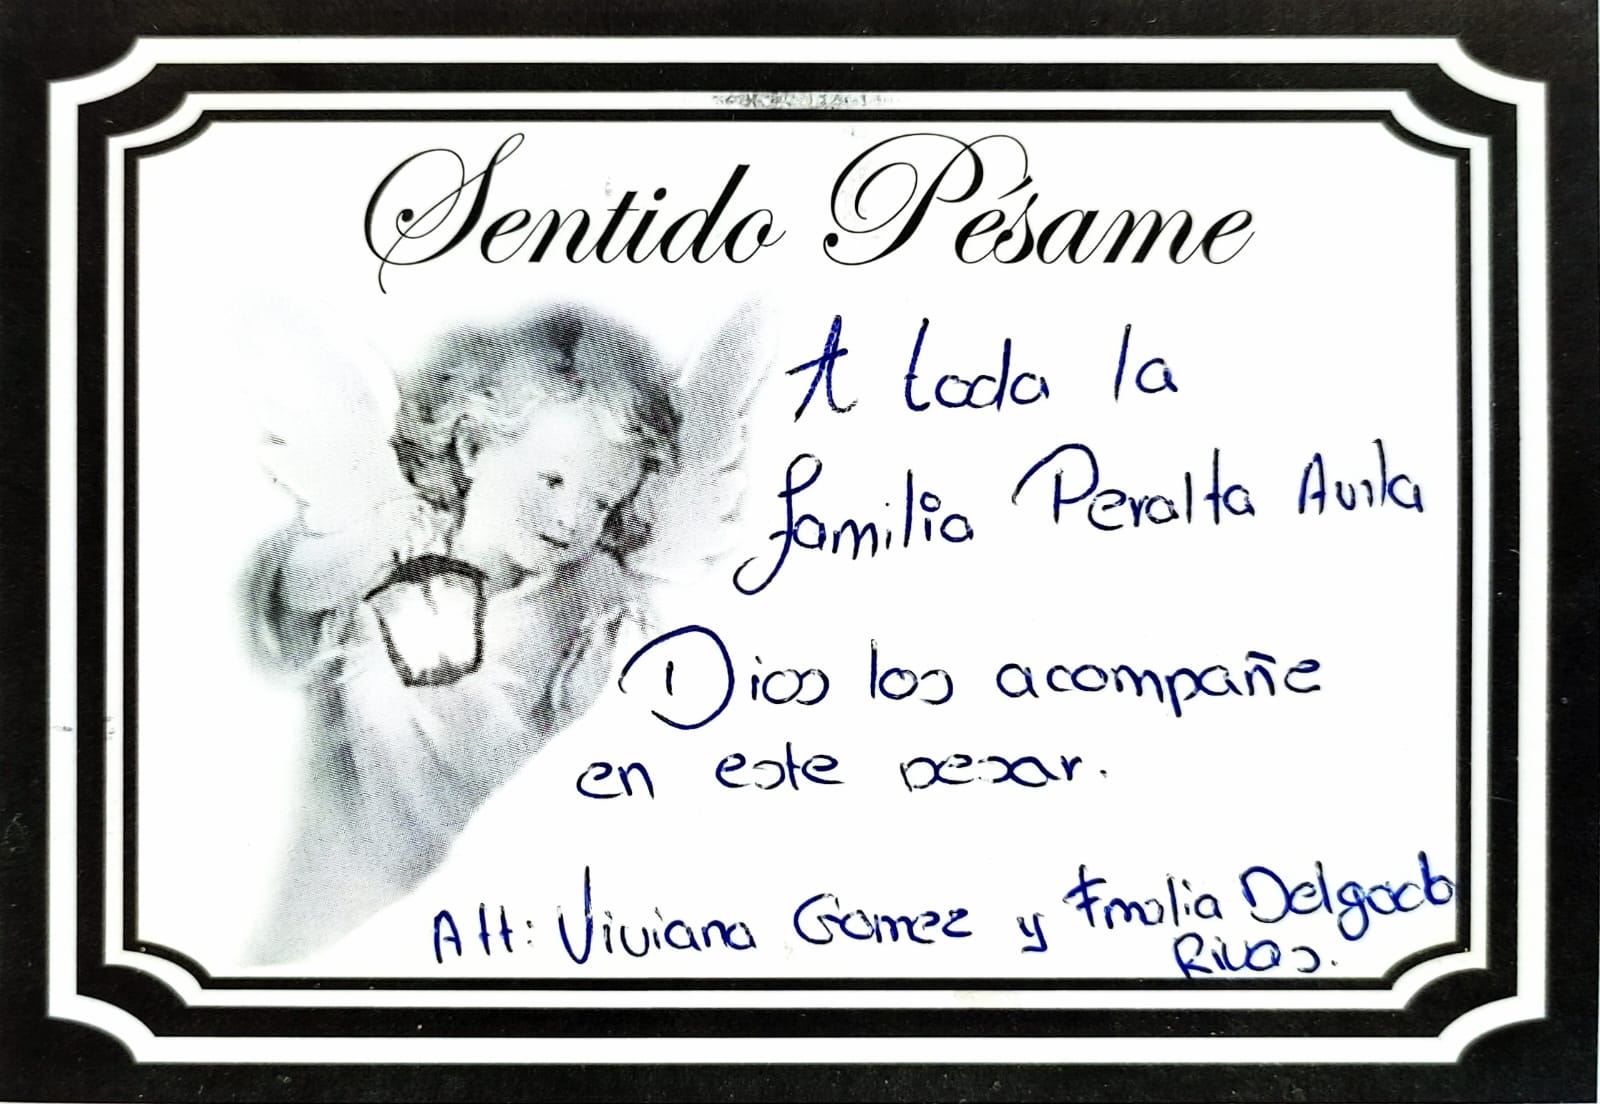 Sentido Pésame
A toda la
familia Peralta Avila
Dios los acompañe
en este pesar.
Att: Viviana Gomez y Emalia Delgado
Rivas.